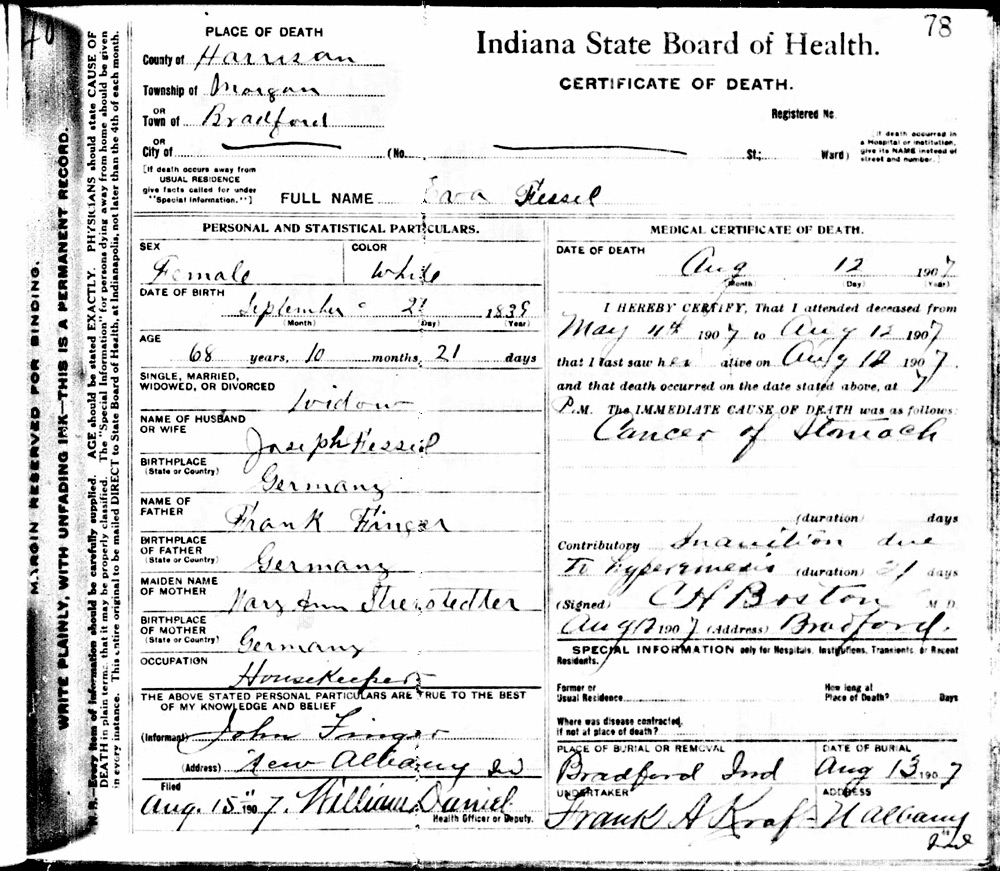 78
PLACE OF DEATH
Indiana State Board of Health.
CERTIFICATE OF DEATH.
County of Harrison
Township of Morgan
OR
Town of Bradford
OR
City of (No. St.; Ward)
Registered No.
[If death occurred in a Hospital or institution, give its NAME instead of street and number.]
[If death occurs away from USUAL RESIDENCE give facts called for under "Special Information."]
FULL NAME Eva Fessel
MARGIN RESERVED FOR BINDING.
WRITE PLAINLY, WITH UNFADING INK—THIS IS A PERMANENT RECORD.
N. B.—Every item of information should be carefully supplied. AGE should be stated EXACTLY. PHYSICIANS should state CAUSE OF
DEATH in plain terms, that it may be properly classified. The "Special Information" for persons dying away from home should be given
in every instance. This entire original to be mailed DIRECT to State Board of Health, at Indianapolis, not later than the 4th of each month.
PERSONAL AND STATISTICAL PARTICULARS.
SEX Female
COLOR White
DATE OF BIRTH September 21
(Month) (Day) (Year)
AGE 68 years, 10 months, 21 days
SINGLE, MARRIED,
WIDOWED, OR DIVORCED
Widow
NAME OF HUSBAND
OR WIFE
Joseph Fessel
BIRTHPLACE
(State or Country)
Germany
NAME OF
FATHER
Frank Finger
BIRTHPLACE
OF FATHER
(State or Country)
Germany
MAIDEN NAME
OF MOTHER
Mary Ann
BIRTHPLACE
OF MOTHER
(State or Country)
Germany
OCCUPATION
Housekeeper
THE ABOVE STATED PERSONAL PARTICULARS ARE TRUE TO THE BEST
OF MY KNOWLEDGE AND BELIEF
(Informant) John Finger
(Address) New Albany Ind
Filed
Aug. 15" 1907. William Daniel
Health Officer or Deputy.
MEDICAL CERTIFICATE OF DEATH.
DATE OF DEATH
Aug 12 1907
(Month) (Day) (Year)
I HEREBY CERTIFY, That I attended deceased from
May 4th 1907 to Aug 12 1907
that I last saw her alive on Aug 12 1907
and that death occurred on the date stated above, at 7
P.M. The IMMEDIATE CAUSE OF DEATH was as follows:
Cancer of Stomach
(duration) days
Contributory Inanition due
to Hyperemesis (duration) 21 days
(Signed) C H Boston M. D.
Aug 12 1907 (Address) Bradford.
SPECIAL INFORMATION only for Hospitals, Institutions, Transients, or Recent
Residents.
Former or
Usual Residence
How long at
Place of Death? Days
Where was disease contracted,
if not at place of death?
PLACE OF BURIAL OR REMOVAL
Bradford Ind
DATE OF BURIAL
Aug 13 1907
UNDERTAKER
Frank A Kraf
ADDRESS
N albany
Ind